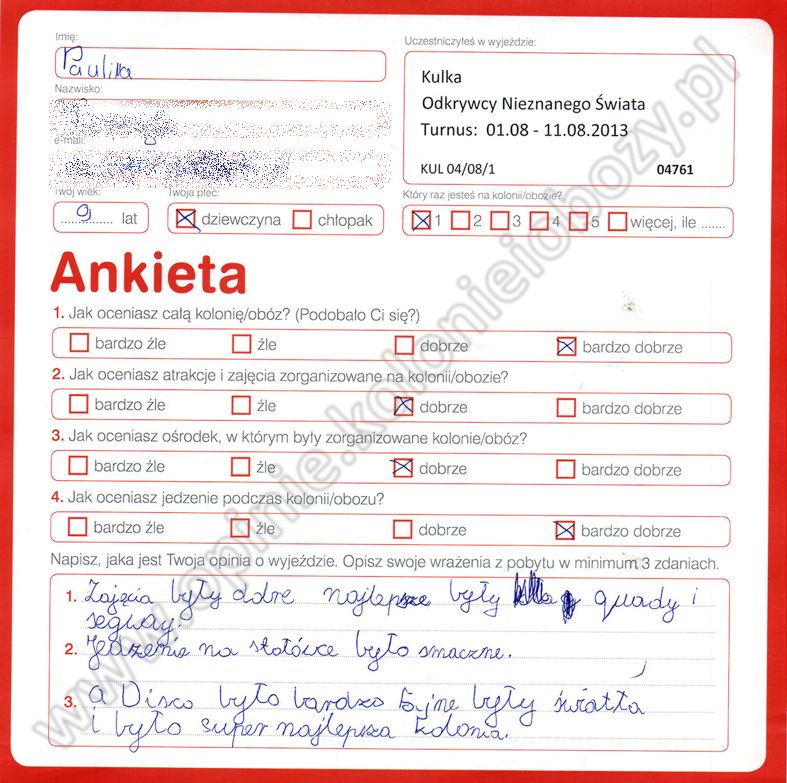 Imię:
Paulina
Nazwisko:
e-mail:
Twój wiek:
9 lat
Twoja płeć:
dziewczyna chłopak
Uczestniczyłeś w wyjeździe:
Kulka
Odkrywcy Nieznanego Świata
Turnus: 01.08 - 11.08.2013
KUL 04/08/1 04761
Który raz jesteś na kolonii/obozie?
1 2 3 4 5 więcej, ile .......
Ankieta
1. Jak oceniasz całą kolonię/obóz? (Podobało Ci się?)
bardzo źle źle dobrze bardzo dobrze
2. Jak oceniasz atrakcje i zajęcia zorganizowane na kolonii/obozie?
bardzo źle źle dobrze bardzo dobrze
3. Jak oceniasz ośrodek, w którym były zorganizowane kolonie/obóz?
bardzo źle źle dobrze bardzo dobrze
4. Jak oceniasz jedzenie podczas kolonii/obozu?
bardzo źle źle dobrze bardzo dobrze
Napisz, jaka jest Twoja opinia o wyjeździe. Opisz swoje wrażenia z pobytu w minimum 3 zdaniach.
1. Zajęcia były dobre najlepsze były quady i
segway.
2. Jedzenie na stołówce było smaczne.
3. a Disco było bardzo fajne były światła
i było super najlepsza kolonia.
www.opinie.kolonieiobozy.pl